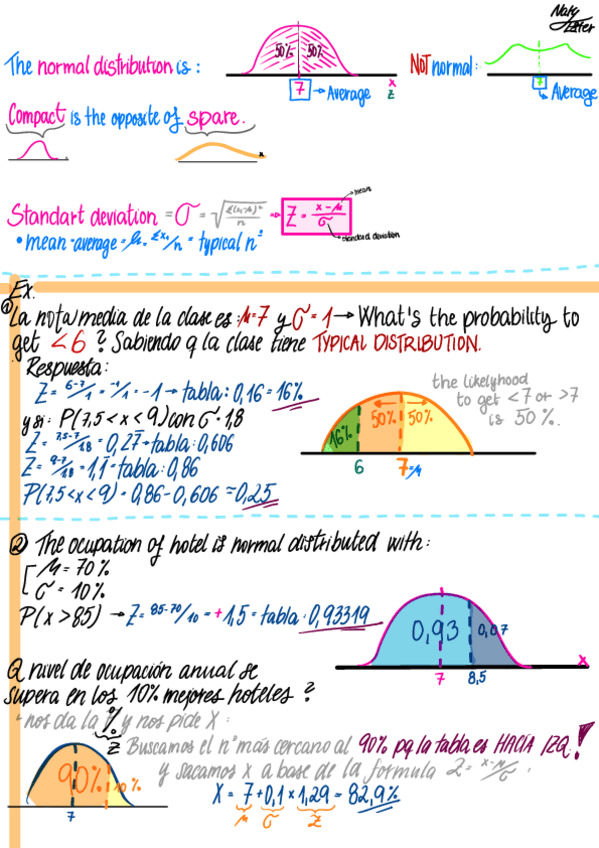 Naty
50% 50%
The normal distribution is:
7 → Average
x
z
NOT normal:
7
↳ Average
Compact is the opposite of spare.
x
Standart deviation = σ = √ Σ(xi-μ)²/n → Z = x-μ/σ
mean
standard deviation
• mean = average = μ = Σxi/n = typical nº
Ex.
① La nota media de la clase es: μ=7 y σ=1 → What's the probability to
get <6? Sabiendo q la clase tiene TYPICAL DISTRIBUTION.
Respuesta:
Z = 6-7/1 = -1/1 = -1 → tabla: 0,16 = 16%
y si: P(7,5<x<9) con σ=1,8
Z = 7,5-7/1,8 = 0,27 → tabla: 0,606
Z = 9-7/1,8 = 1,1 = tabla: 0,86
P(7,5<x<9) = 0,86-0,606 = 0,25
the likelyhood
to get <7 or >7
is 50%.
16% 50% 50%
6 7=μ
② The ocupation of hotel is normal distributed with:
μ = 70%
σ = 10%
P(x>85) → Z = 85-70/10 = +1,5 = tabla: 0,93319
0,93 0,07
x
7 8,5
Q nivel de ocupación anual se
supera en los 10% mejores hoteles?
↳ nos da la % y nos pide X:
z
Buscamos el nº más cercano al 90% pq la tabla es HACIA IZQ!
y sacamos x a base de la formula Z = x-μ/σ
90% 10%
7
X = 7+0,1×1,29 = 82,9%
μ σ z